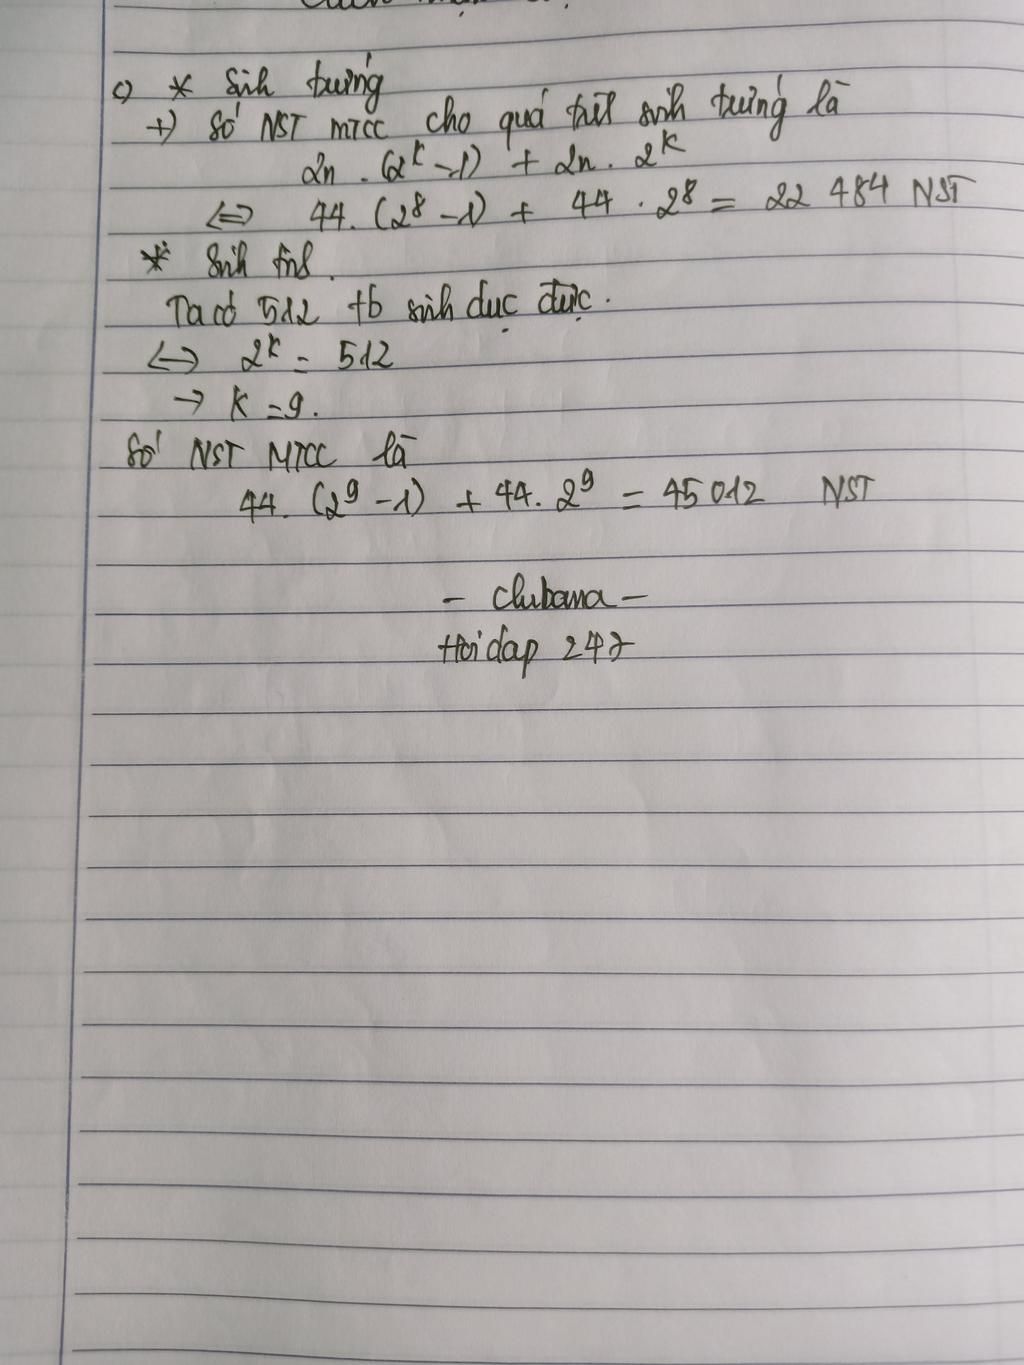 c) * Sinh trứng
+) Số NST MTCC cho quá trình sinh trứng là
2n . (2^k - 1) + 2n . 2^k
<=> 44. (2^8 - 1) + 44 . 2^8 = 22 484 NST
* Sinh
Ta có 512 tb sinh dục đực.
<=> 2^k = 512
-> K = 9.
Số NST MTCC là
44. (2^9 - 1) + 44. 2^9 = 45 012 NST
- Chubana -
Hoidap 247